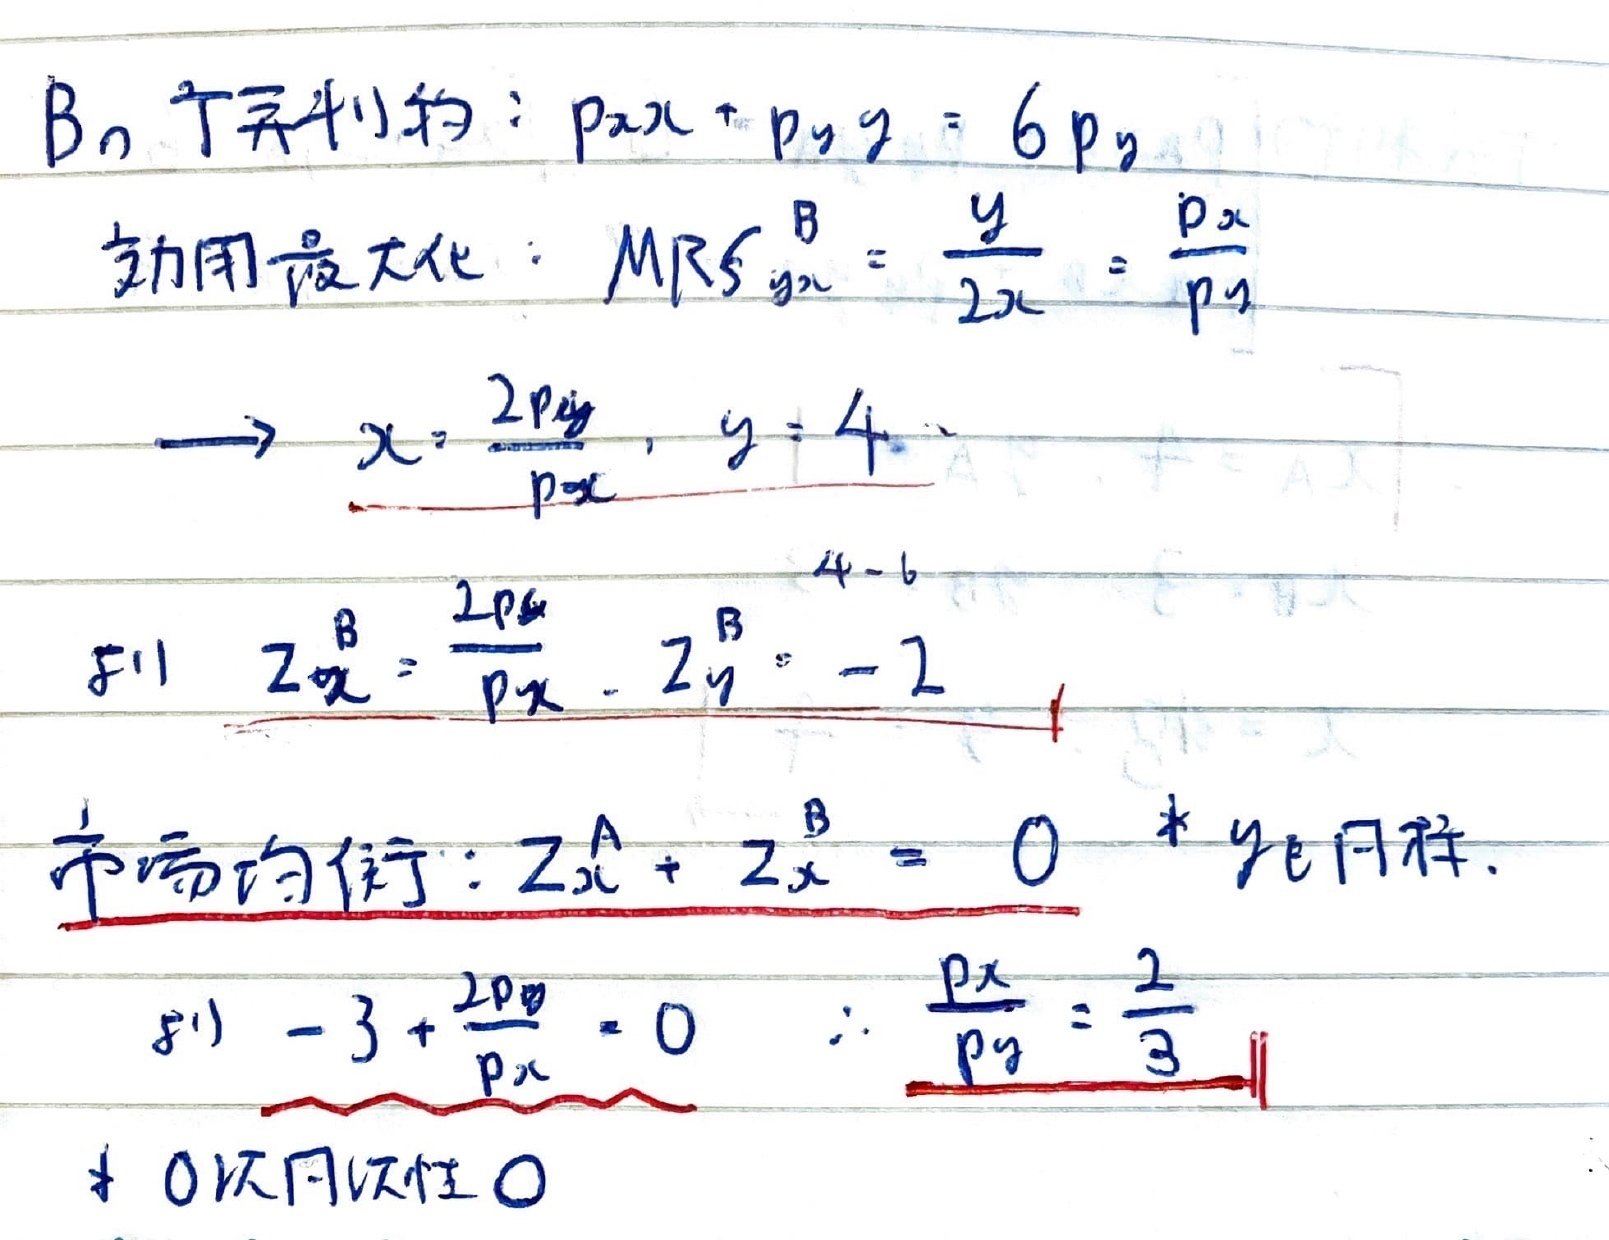 Bの予算制約：pxx + pyy = 6py
効用最大化：MRS^B_yx = y/2x = px/py
→ x = 2py/px, y = 4
4-6
より Z^B_x = 2py/px, Z^B_y = -2
市場均衡：Z^A_x + Z^B_x = 0 * yも同様.
より -3 + 2py/px = 0 ∴ px/py = 2/3
* 0次同次性0